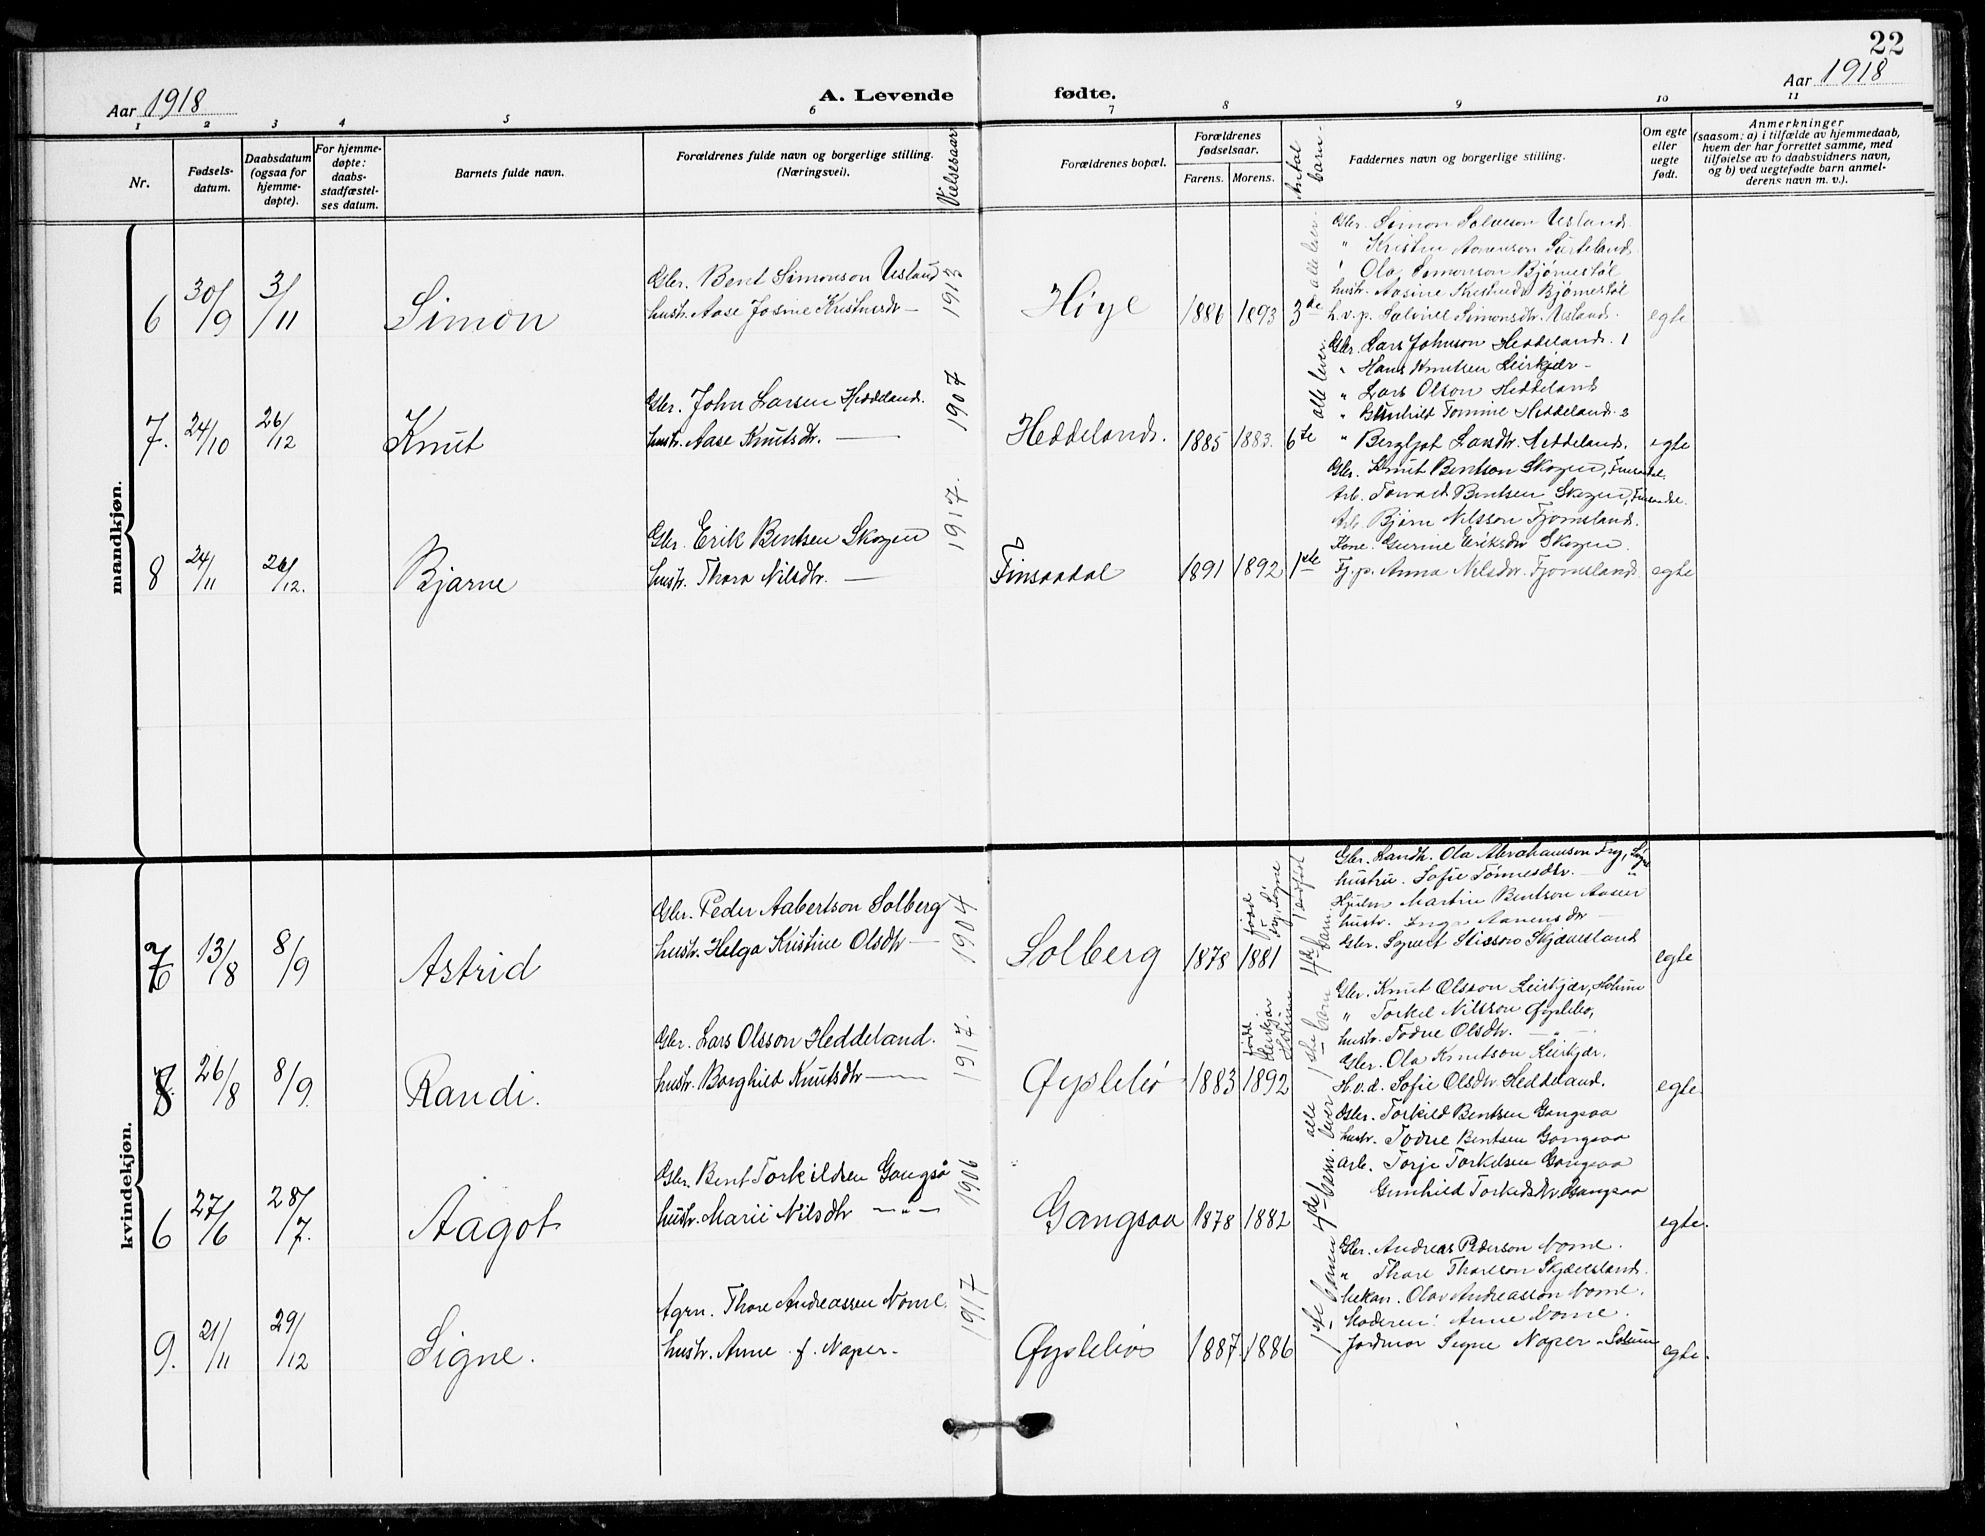 22
Aar 1918
A. Levende fødte.
Aar 1918
1 2 3 4 5 6 7 8 9 10 11
Nr.
Fødsels-
datum.
Daabsdatum
(ogsaa for
hjemme-
døpte).
For hjemme-
døpte:
daabs-
stadfæstel-
ses datum.
Barnets fulde navn.
Forældrenes fulde navn og borgerlige stilling.
(Næringsvei).
Vielsesaar
Forældrenes bopæl.
Forældrenes
fødselsaar.
Farens. Morens.
Antal
barn.
Faddernes navn og borgerlige stilling.
Om egte
eller
uegte
født.
Anmerkninger
(saasom: a) i tilfælde av hjemmedaab,
hvem der har forrettet samme, med
tilføielse av to daabsvidners navn,
og b) ved uegtefødte barn anmel-
derens navn m. v.).
mandkjøn.
6 30/9 3/11 Simon
Gbr. Bent Simonson Usland
hustr. Aase Josine Kristensdr —
1913
Høye 1886 1893 3de alle lever
Gbr. Simon Salveson Usland.
" Kristen Aanenson Surteland
" Ola Simonson Bjørnestøl
hustr. Aasine Kristensdr Bjørnestøl
h.v.p. Salvine Simonsdtr. Usland.
egte
7. 24/10 26/12 Knut
Gbr. John Larsen Heddeland.
hustr. Aase Knutsdtr. —
1907
Heddeland. 1885 1883. 6te alle lever
Gbr. Lars Johnson Heddeland. 1
" Hans Knutsen Leirkjær –
" Lars Olson Heddeland
" Tomine Heddeland. 3
" Bergljot Larsdtr. Heddeland.
egte
8 24/11 26/12. Bjarne
Gbr. Erik Bentsen Skogen
hustr. Thora Nilsdtr. —
1917.
Finsaadal 1891 1892 1ste
Gbr. Knut Bentson Skogen, Finsaadal.
Arb. Torvald Bentsen Skogen, Finsaadal.
Arb. Bjørn Nilsson Fjomsland.
Kone. Gurine Eriksdtr Skogen.
Tj.p. Anna Nilsdtr. Fjomsland.
egte
kvindekjøn.
7 13/8 8/9 Astrid
Gbr. Peder Aabertson Solberg
hustr. Helga Kristine Olsdtr —
1904
Solberg 1878 1881
født Try, Søgne
4de barn.
Gbr. Landh. Ola Abrahamson Try, Søgne
hustru. Sofie Tønnesdtr. — "
Martin Bentson Aaseer
hustr. Inga Aanensdtr —
Gbr. Sigurt Skjævesland
egte
8 26/8 8/9. Randi.
Gbr. Lars Olsson Heddeland.
hustr. Borghild Knutsdtr —
1917.
Øyslebø 1883 1892
født Leirkjær Holum
1ste barn
Gbr. Knut Olsson Leirkjær, Holum
" Torkel Nilsson Øyslebø,
hustr. Todne Olsdtr. — " —
Gbr. Ola Knutson Leirkjær.
H.v.d. Sofie Olsdtr Heddeland.
egte.
6 27/6 28/7. Aagot
Gbr. Bent Torkildsen Gangså
hustr. Marie Nilsdtr — " —
1906
Gangsaa 1878 1882
4de barn. alle lever
Gbr. Torkild Bentsen Gangsaa
hustr. Todne Bentsen Gangsaa
arb. Torje Torkelsen Gangsaa
Gunhild Torkildsdtr Gangsaa
egte.
9. 21/11 29/12 Signe.
Agrn. Thore Andreassen Nome.
hustr. Anne f. Naper.
1917
Øyslebø 1887. 1886
1ste barn
Gbr. Andreas Pederson Nome.
" Thore Thoreson Skjævesland.
Mekan. Olav Andreasson Nome.
Moderen: Anne Nome.
Jordmor Signe Naper – Solum
egte.